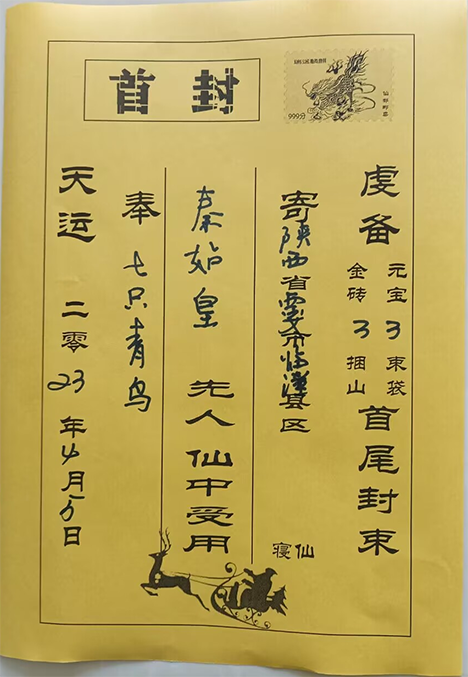 首封
999分
虔备
元宝3束袋
金砖3捆山
首尾封束
寄陕西省西安市临潼县区
仙寝
秦始皇 先人仙中受用
奉 七只青鸟
天运 二零23年4月5日